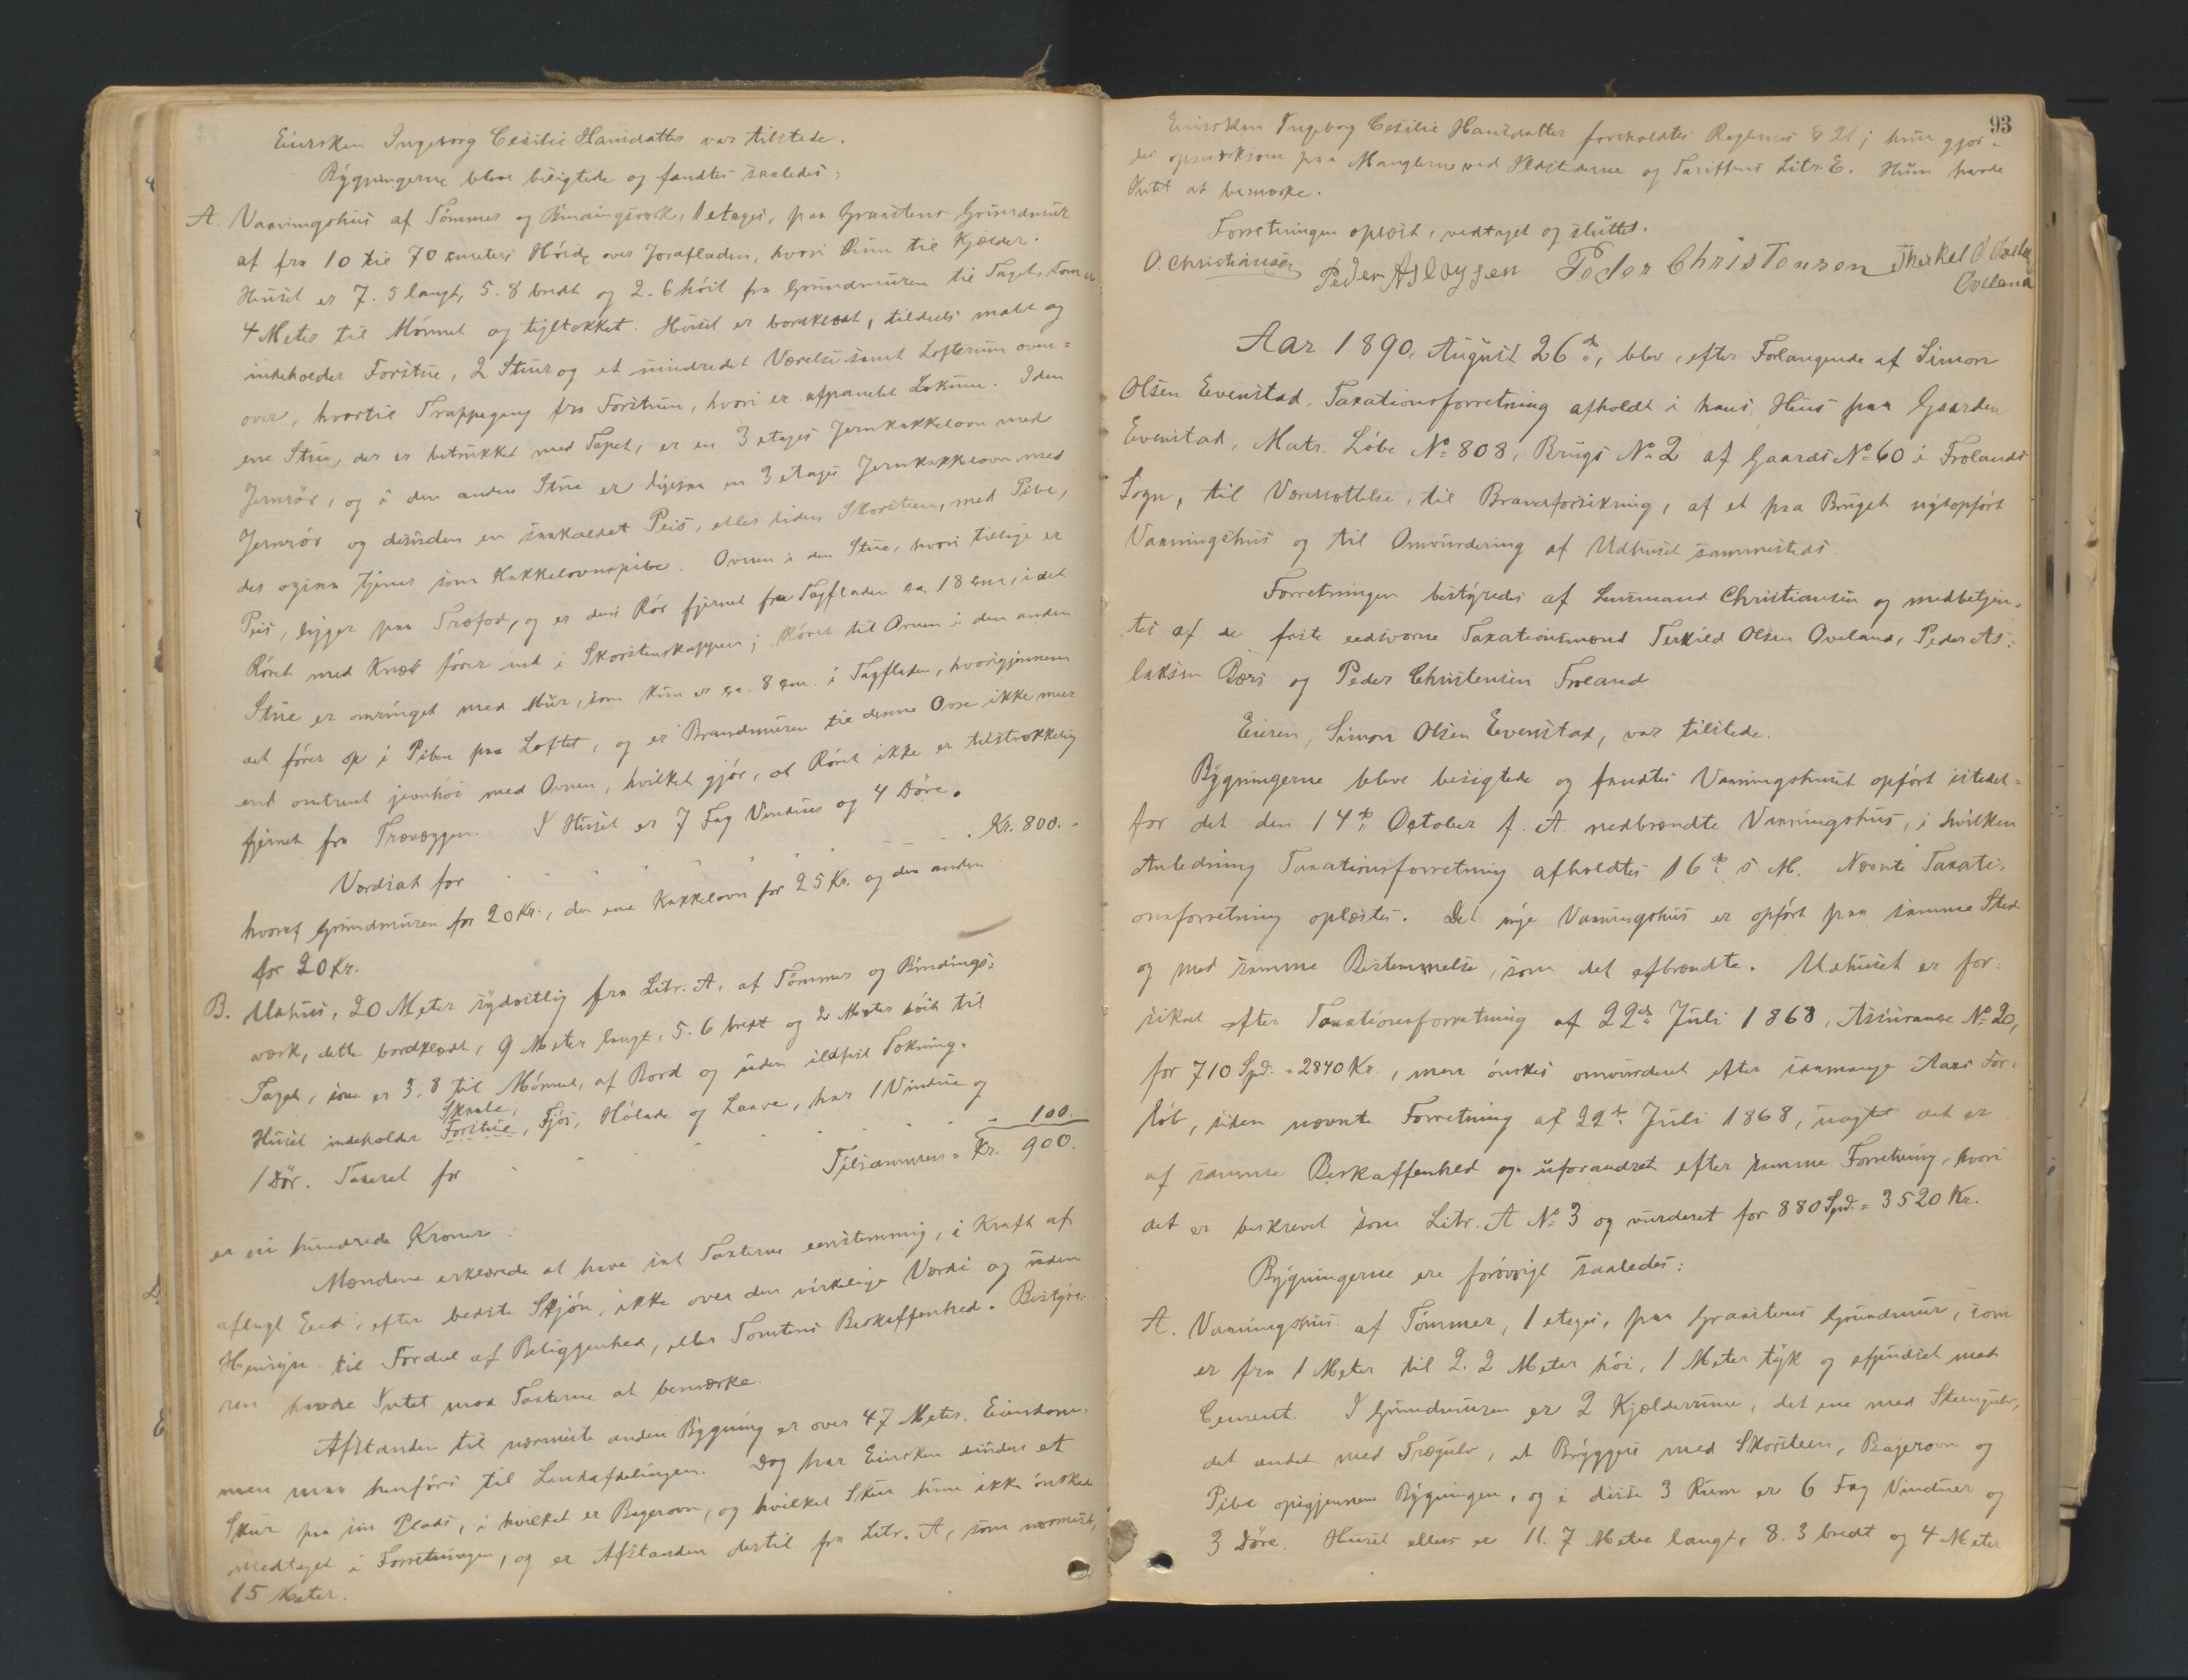 Eiersken Ingeborg Cesilie Hansdatter var tilstede.
Bygningerne bleve besigtede og fandtes saaledes:
A. Vaaningshus af Tømmer og Bindingsverk, 1 etages, paa Graastens Grundmur
af fra 10 til 70 cmeters Høide over Jordfladen, hvori Rum til Kjelder.
Huset er 7.5 langt, 5.8 bredt og 2.6 høit fra Grundmuren til Taget, som er
4 Meter til Mønnet og tegltækket. Huset er bordklædt, tildeels malet og
indeholder Forstue, 2 Stuer og et mindredet Værelse samt Lofterum oven=
over, hvortil Trappegang fra Forstuen, hvori er afpanelet Lokum. I den
ene Stue, der er betrukket med Tapet, er en 3 etages Jernkakkelovn med
Jernrør, og i den anden Stue er ligesaa en 3 etages Jernkakkelovn med
Jernrør og desuden en saakaldet Peis, eller liden Skorsteen, med Pibe,
der ogsaa tjener som Kakkelovnspibe. Ovnen i den Stue, hvori tillige er
Peis, ligger paa Træfod, og er dens Rør fjernet fra Tagfladen ca. 18 cm., idet
Røret med Knæ fører ind i Skorstenskappen; Røret til Ovnen i den anden
Stue er omringet med Mur, som kun er ca. 8 cm. i Tagfladen, hvorigjennem
det fører op i Piben paa Loftet, og er Brandmuren til denne Ovn ikke mere
end omtrent jevnhøi med Ovnen, hvilket gjør, at Røret ikke er tilstrækkelig
fjernet fra Trævæggen. I Huset er 7 Fag Vinduer og 4 Døre.
Værdsat for . . . Kr. 800.-
hvoraf Grundmuren for 20 Kr., den ene Kakkelovn for 25 Kr. og den anden
for 20 Kr.
B. Udhus, 20 Meter sydostlig fra Litr. A, af Tømmer og Bindings=
værk, dette bordklædt, 9 Meter langt, 5.6 bredt og 2 Meter høit til
Taget, som er 3.8 til Mønnet, af Bord og uden ildfast Tækning.
Skaale,
Huset indeholder Forstue, Fjøs, Hølade og Laave, har 1 Vindue og
1 Dør. Taxeret for . . . - 100.
Tilsammen = Kr. 900.
er ni hundrede Kroner.
Mændene erklærede at have sat Taxterne eenstemmig, i Kraft af
aflagt Eed, efter bedste Skjøn, ikke over den virkelige Værdi og uden
Hensyn til Fordeel af Beliggenhed, eller Tomtens Beskaffenhed. Bestyre=
ren havde Intet mod Taxterne at bemærke.
Afstanden til nærmeste anden Bygning er over 47 Meter. Eiendom=
men maa henføres til Landafdelingen. Dog har Eiersken desuden et
Skur paa sin Plads, i hvilket er Bagerovn, og hvilket Skur hun ikke ønskede
medtaget i Forretningen, og er Afstanden dertil fra Litr. A, som nærmest,
15 Meter.
93
Eiersken Ingeborg Cesilie Hansdatter foreholdtes Reglernes § 21; hun gjor=
des opmerksom paa Manglerne ved Ildstederne og Tariffens Litr. E. Hun havde
Intet at bemærke.
Forretningen oplæst, vedtaget og sluttet.
O. Christiansen Peder Aslagsen Peder Christensen Therkel O
Øveland
Aar 1890, August 26de, blev, efter Forlangende af Simon
Olsen Evenstad, Taxationsforretning afholdt i hans Hus paa Gaarden
Evenstad, Matr. Løbe No 808, Brugs No 2 af Gaards No 60 i Frolands
Sogn, til Værdsættelse, til Brandforsikring, af et paa Bruget nyt opført
Vaaningshus og til Omvurdering af Udhuset sammesteds.
Forretningen bestyredes af Lensmand Christiansen og medbetjen=
tes af de faste eedsvorne Taxationsmænd Terkild Olsen Øveland, Peder As=
laksen Bærs og Peder Christensen Froland
Eieren, Simon Olsen Evenstad, var tilstede.
Bygningerne bleve besigtede og fandtes Vaaningshuset opført istedet=
for det den 14de October f. A. nedbrændte Vaaningshus, i hvilken
Anledning Taxationsforretning afholdtes 16de s. M. Nævnte Taxati=
onsforretning oplæstes. Det nye Vaaningshus er opført paa samme Sted
og med samme Bestemmelse, som det afbrændte. Udhuset er for=
sikret efter Taxationsforretning af 22de Juli 1868, Assurance No 20,
for 710 Spd. = 2840 Kr., men ønskes omvurderet efter saamange Aars For=
løb, siden nævnte Forretning af 22de Juli 1868, uagtet det er
af samme Beskaffenhed og uforandret efter samme Forretning, hvori
det er beskrevet som Litr. A No 3 og vurderet for 880 Spd. = 3520 Kr.
Bygningerne ere forøvrigt saaledes:
A. Vaaningshus af Tømmer, 1 etages, paa Graastens Grundmur, som
er fra 1 Meter til 2.2 Meter høi, 1 Meter tyk og afpudset med
Cement. I Grundmuren er 2 Kjælderrume, det ene med Steengulv,
det andet med Trægulv, et Bryggers med Skorsteen, Bagerovn og
Pibe opigjennem Bygningen, og i disse 3 Rum er 6 Fag Vinduer og
3 Døre. Huset ellers er 11.7 Meter langt, 8.3 bredt og 4 Meter